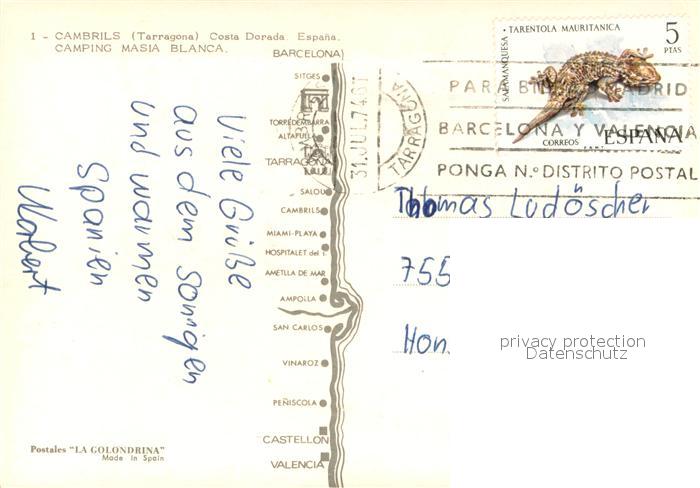 1 - CAMBRILS (Tarragona) Costa Dorada. España.
CAMPING MASIA BLANCA.
BARCELONA)
SITGES
TORREDEMBARRA
ALTAFULLA
TARRAGONA
SALOU
CAMBRILS
MIAMI-PLAYA
HOSPITALET del I.
AMETLLA DE MAR
AMPOLLA
SAN CARLOS
VINAROZ
PEÑISCOLA
CASTELLON
VALENCIA
Viele Grüße
aus dem sonnigen
und warmen
Spanien
Postales "LA GOLONDRINA"
Made in Spain
SALAMANQUESA · TARENTOLA MAURITANICA
5
PTAS
CORREOS
ESPAÑA
31.JUL.74
TARRAGONA
PARA MADRID
BARCELONA Y VALENCIA
PONGA N.º DISTRITO POSTAL
Thomas Ludöscher
755
Hon
privacy protection
Datenschutz